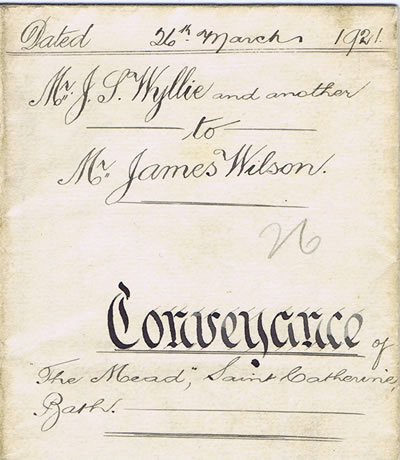 Dated 26th March 1921
Mr. J. S. Wyllie and another
to
Mr. James Wilson.
26
Conveyance of
"The Mead", Saint Catherine,
Bath.